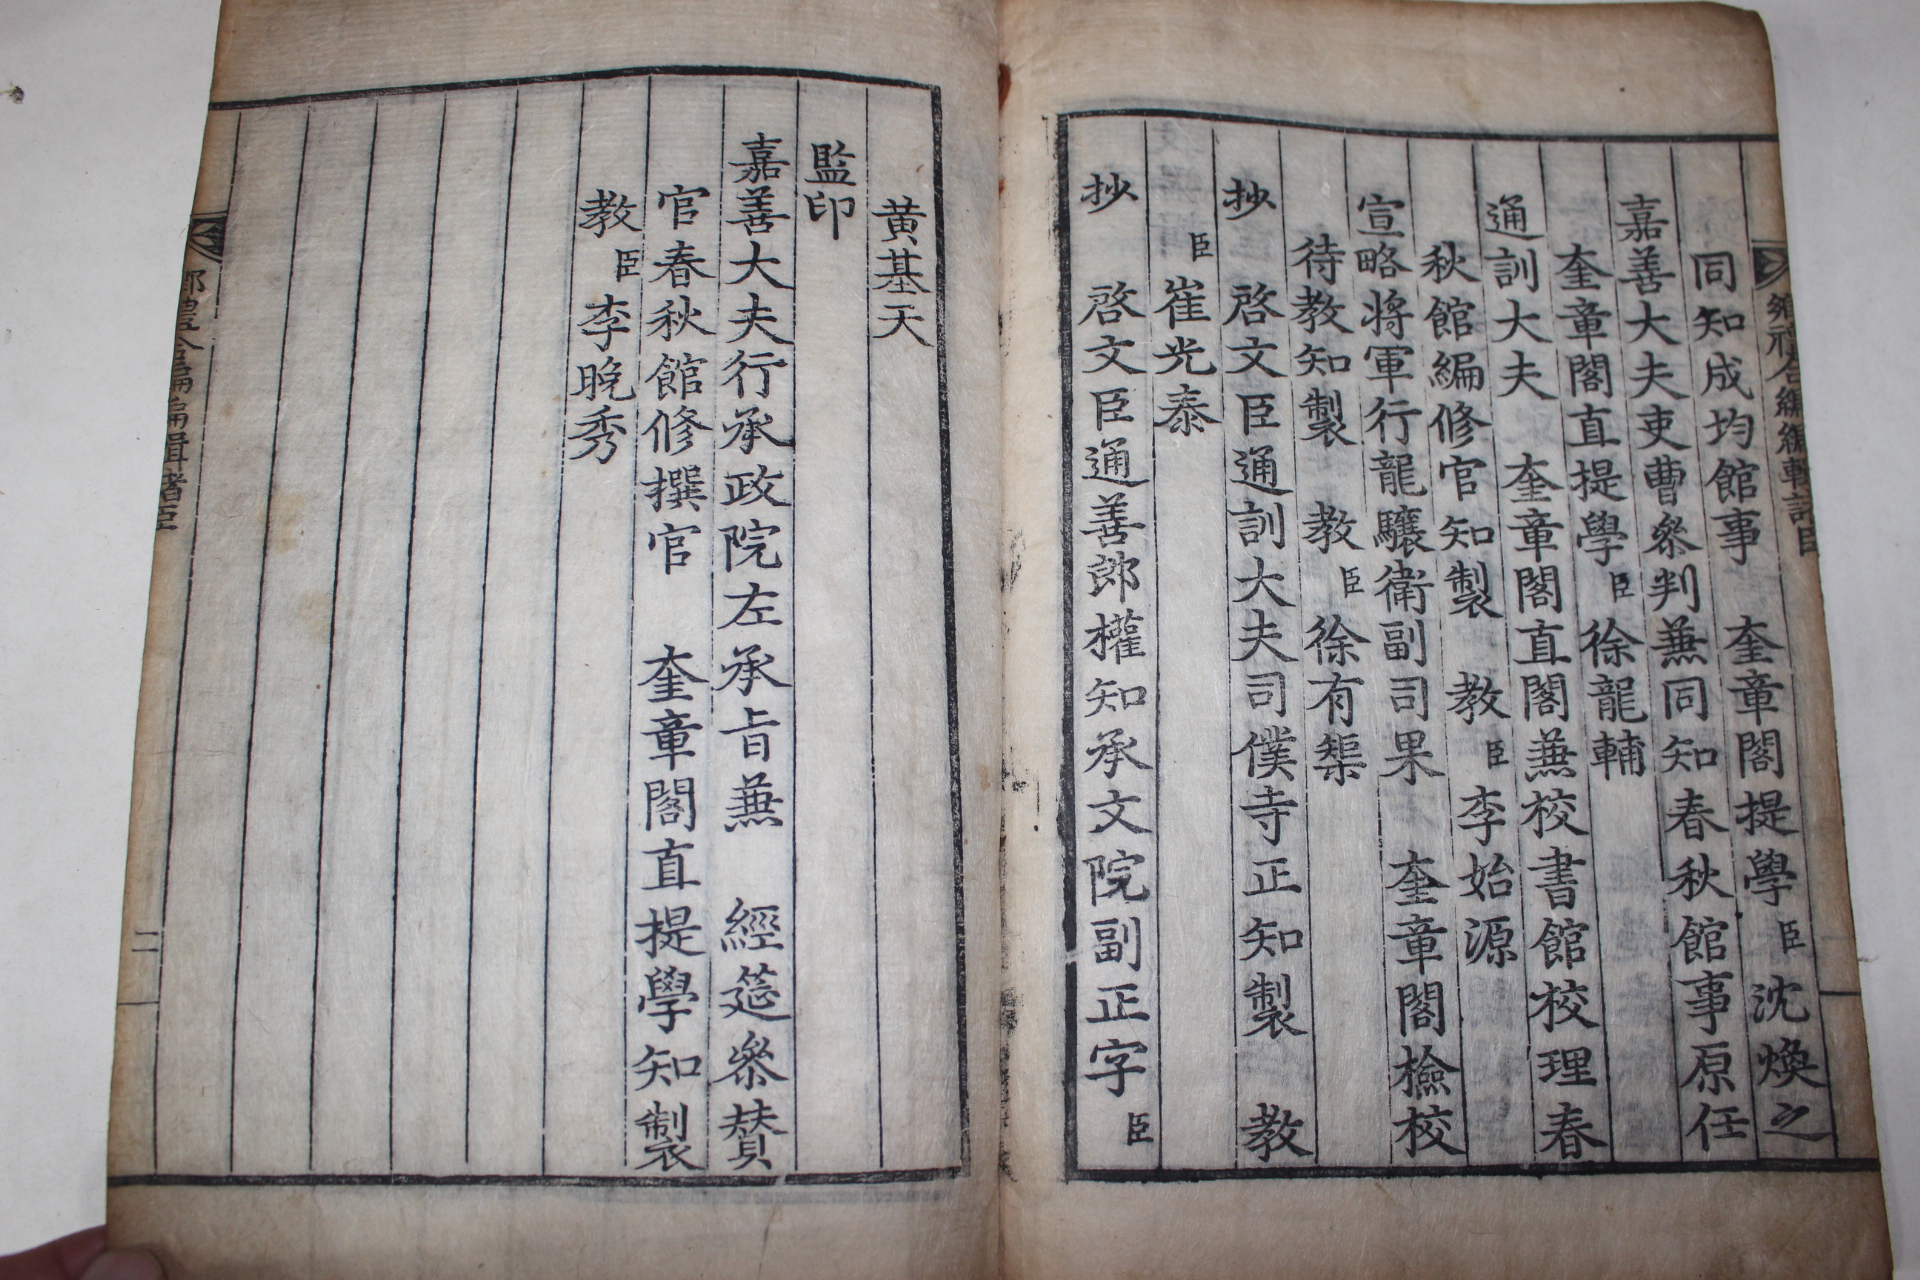 鄉禮合編編輯諸臣
同知成均館事　奎章閣提學臣沈煥之
嘉善大夫吏曹參判兼同知春秋館事原任
奎章閣直提學臣徐龍輔
通訓大夫　奎章閣直閣兼校書館校理春
秋館編修官知製　教臣李始源
宣略將軍行龍驤衛副司果　奎章閣檢校
待教知製　教臣徐有榘
抄　啓文臣通訓大夫司僕寺正知製　教
臣崔光泰
抄　啓文臣通善郎權知承文院副正字臣
黃基天
監印
嘉善大夫行承政院左承旨兼　經筵參贊
官春秋館修撰官　奎章閣直提學知製
教臣李晚秀
鄉禮合編編輯諸臣
二